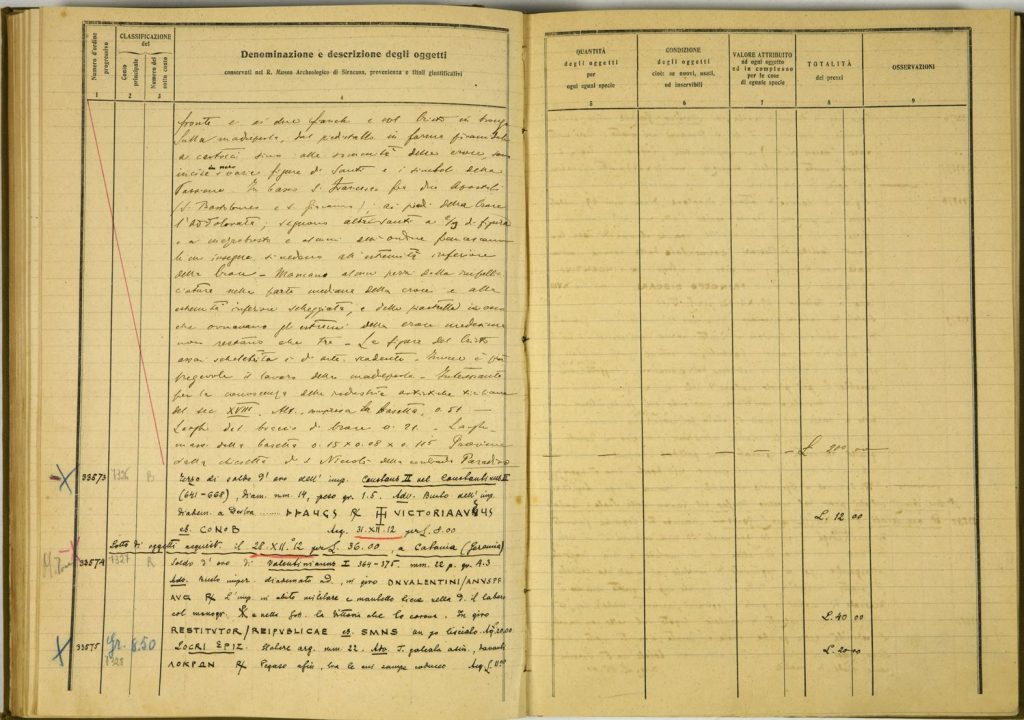 Numero d'ordine progressivo
CLASSIFICAZIONE del
Conto principale
Numero del sotto conto
Denominazione e descrizione degli oggetti
conservati nel R. Museo Archeologico di Siracusa, provenienza e titoli giustificativi
1 2 3 4
QUANTITÀ degli oggetti per ogni egual specie
CONDIZIONE degli oggetti cioè: se nuovi, usati, od inservibili
VALORE ATTRIBUITO ad ogni oggetto ed in complesso per le cose di eguale specie
TOTALITÀ dei prezzi
OSSERVAZIONI
5 6 7 8 9
fronte e ai due fianchi e col Cristo in
sulla madreperla, dal piedistallo in forma
sino alla sommità della croce, sono
incise in nero varie figure di Santi e i simboli della
Passione. In basso S. Francesco fra due Apostoli
(S. Bartolomeo e S. Giacomo); ai piedi della Croce
l'Addolorata; seguono altri santi a 2/3 di figura
e a mezzobusto e alcuni dell'ordine francescano
si vedono all'estremità inferiore
della Croce - Mancano alcuni pezzi della
nella parte mediana della croce e alla
estremità inferiore scheggiata, e delle piastrelle in osso
che ornavano gli estremi della croce medesima
non restano che tre - La figura del Cristo
assai scheletrita è di arte scadente - Invece è più
pregevole il lavoro della madreperla - Interessante
per la conoscenza delle industrie artistiche siciliane
del sec XVIII. Alt. compresa la basetta, 0.51 -
Largh. del braccio di Croce 0.21 - Largh.
mass. della basetta 0.15 x 0.08 x 0.115 Proviene
dalla chiesetta di S Nicolò della contrada Paradiso
L. 200 00
33573 7326 R Terzo di soldo d'oro dell'imp. Constans II nel Constantinus II
(641-668), diam. mm. 14, peso gr. 1.5. Adv. Busto dell'imp.
diadem. a destra VICTORIA
es. CONOB Acq. 31.XII.12 per L. 8.00
L. 12 00
Lotto di oggetti acquist. il 28.XII.12 per L. 36.00, a Catania
33574 7327 R Soldo d'oro di Valentinianus I 364-375. mm. 22 p. gr. 4.3
Adv. Busto imper. diademato ad., in giro DNVALENTINI/ANVSPF
AVG R/ L'imp. in abito militare e mantello tiene nella d. il labaro
col monogr. e nella sin. la Vittoria che lo corona. In giro
RESTITVTOR/REIPVBLICAE es. SMNS un po lisciato.
L. 40 00
33575 gr. 8.50 7328 LOCRI EPIZ. Statere arg. mm. 22. Adv. T. galeata a sin., davanti
ΛΟΚΡΩΝ R/ Pegaso a sin., tra le cui zampe
L. 20 00